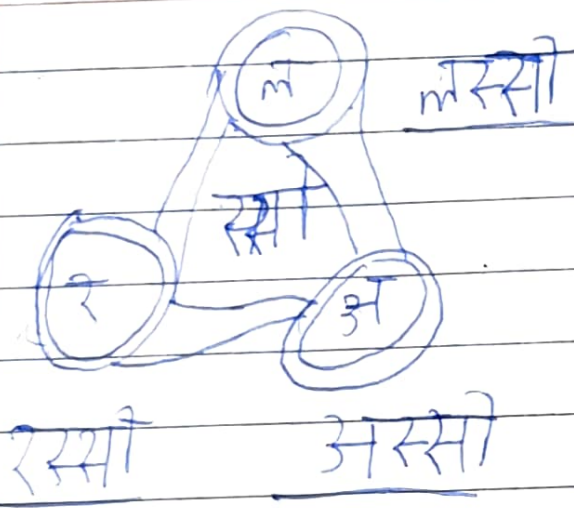 ल
लस्सी
स्सी
र
अ
रस्सी
अस्सी